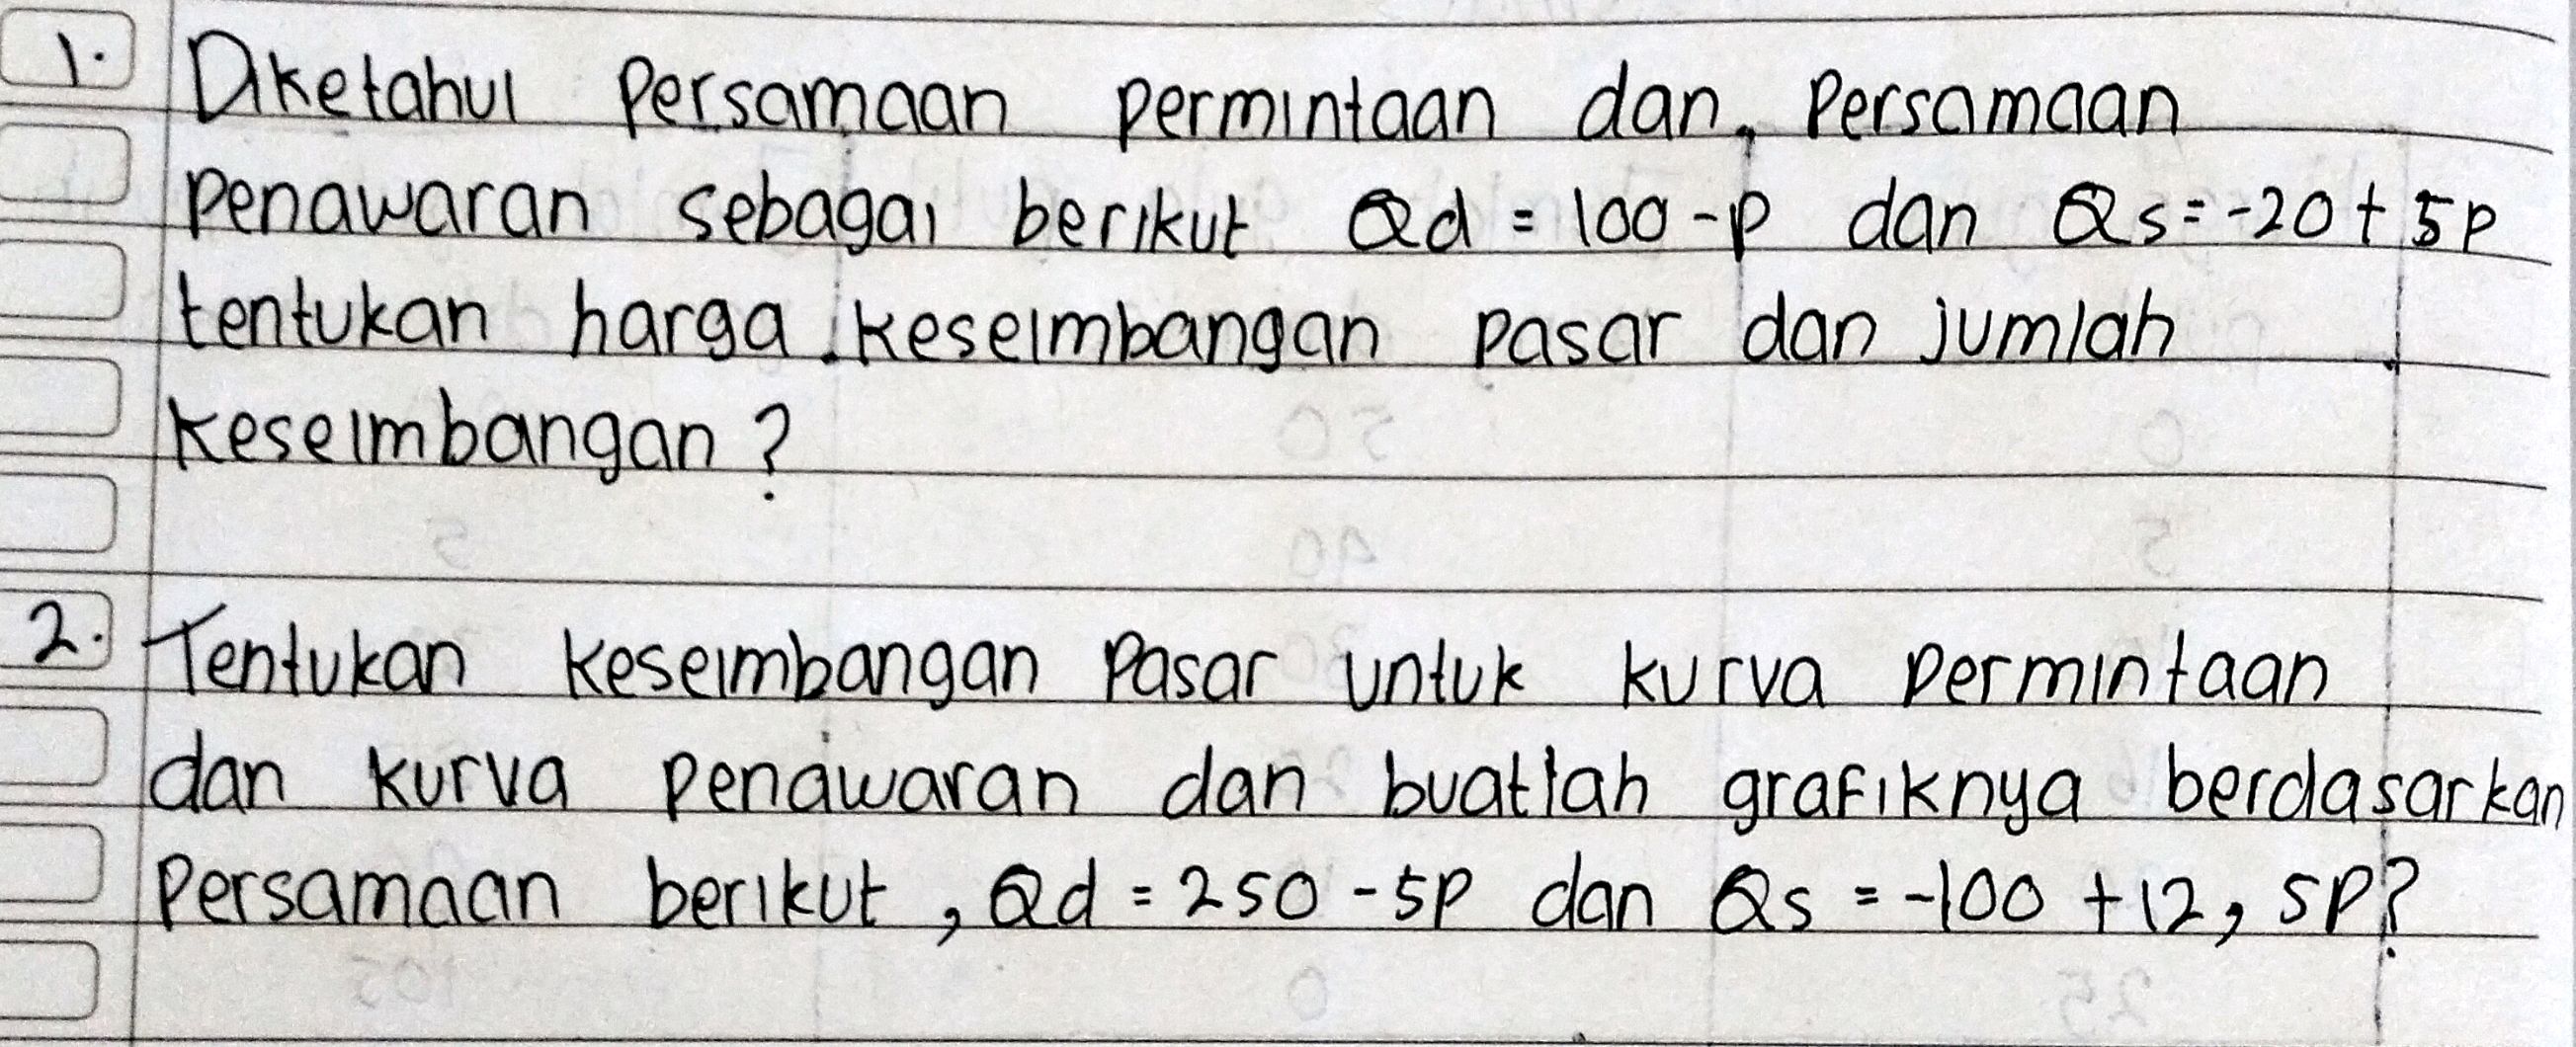 1. Diketahui Persamaan permintaan dan Persamaan
penawaran sebagai berikut Qd = 100 - p dan Qs = -20 + 5p
tentukan harga keseimbangan pasar dan jumlah
keseimbangan ?
2. Tentukan keseimbangan Pasar untuk kurva permintaan
dan kurva penawaran dan buatlah grafiknya berdasarkan
Persamaan berikut , Qd = 250 - 5p dan Qs = -100 + 12, 5p?